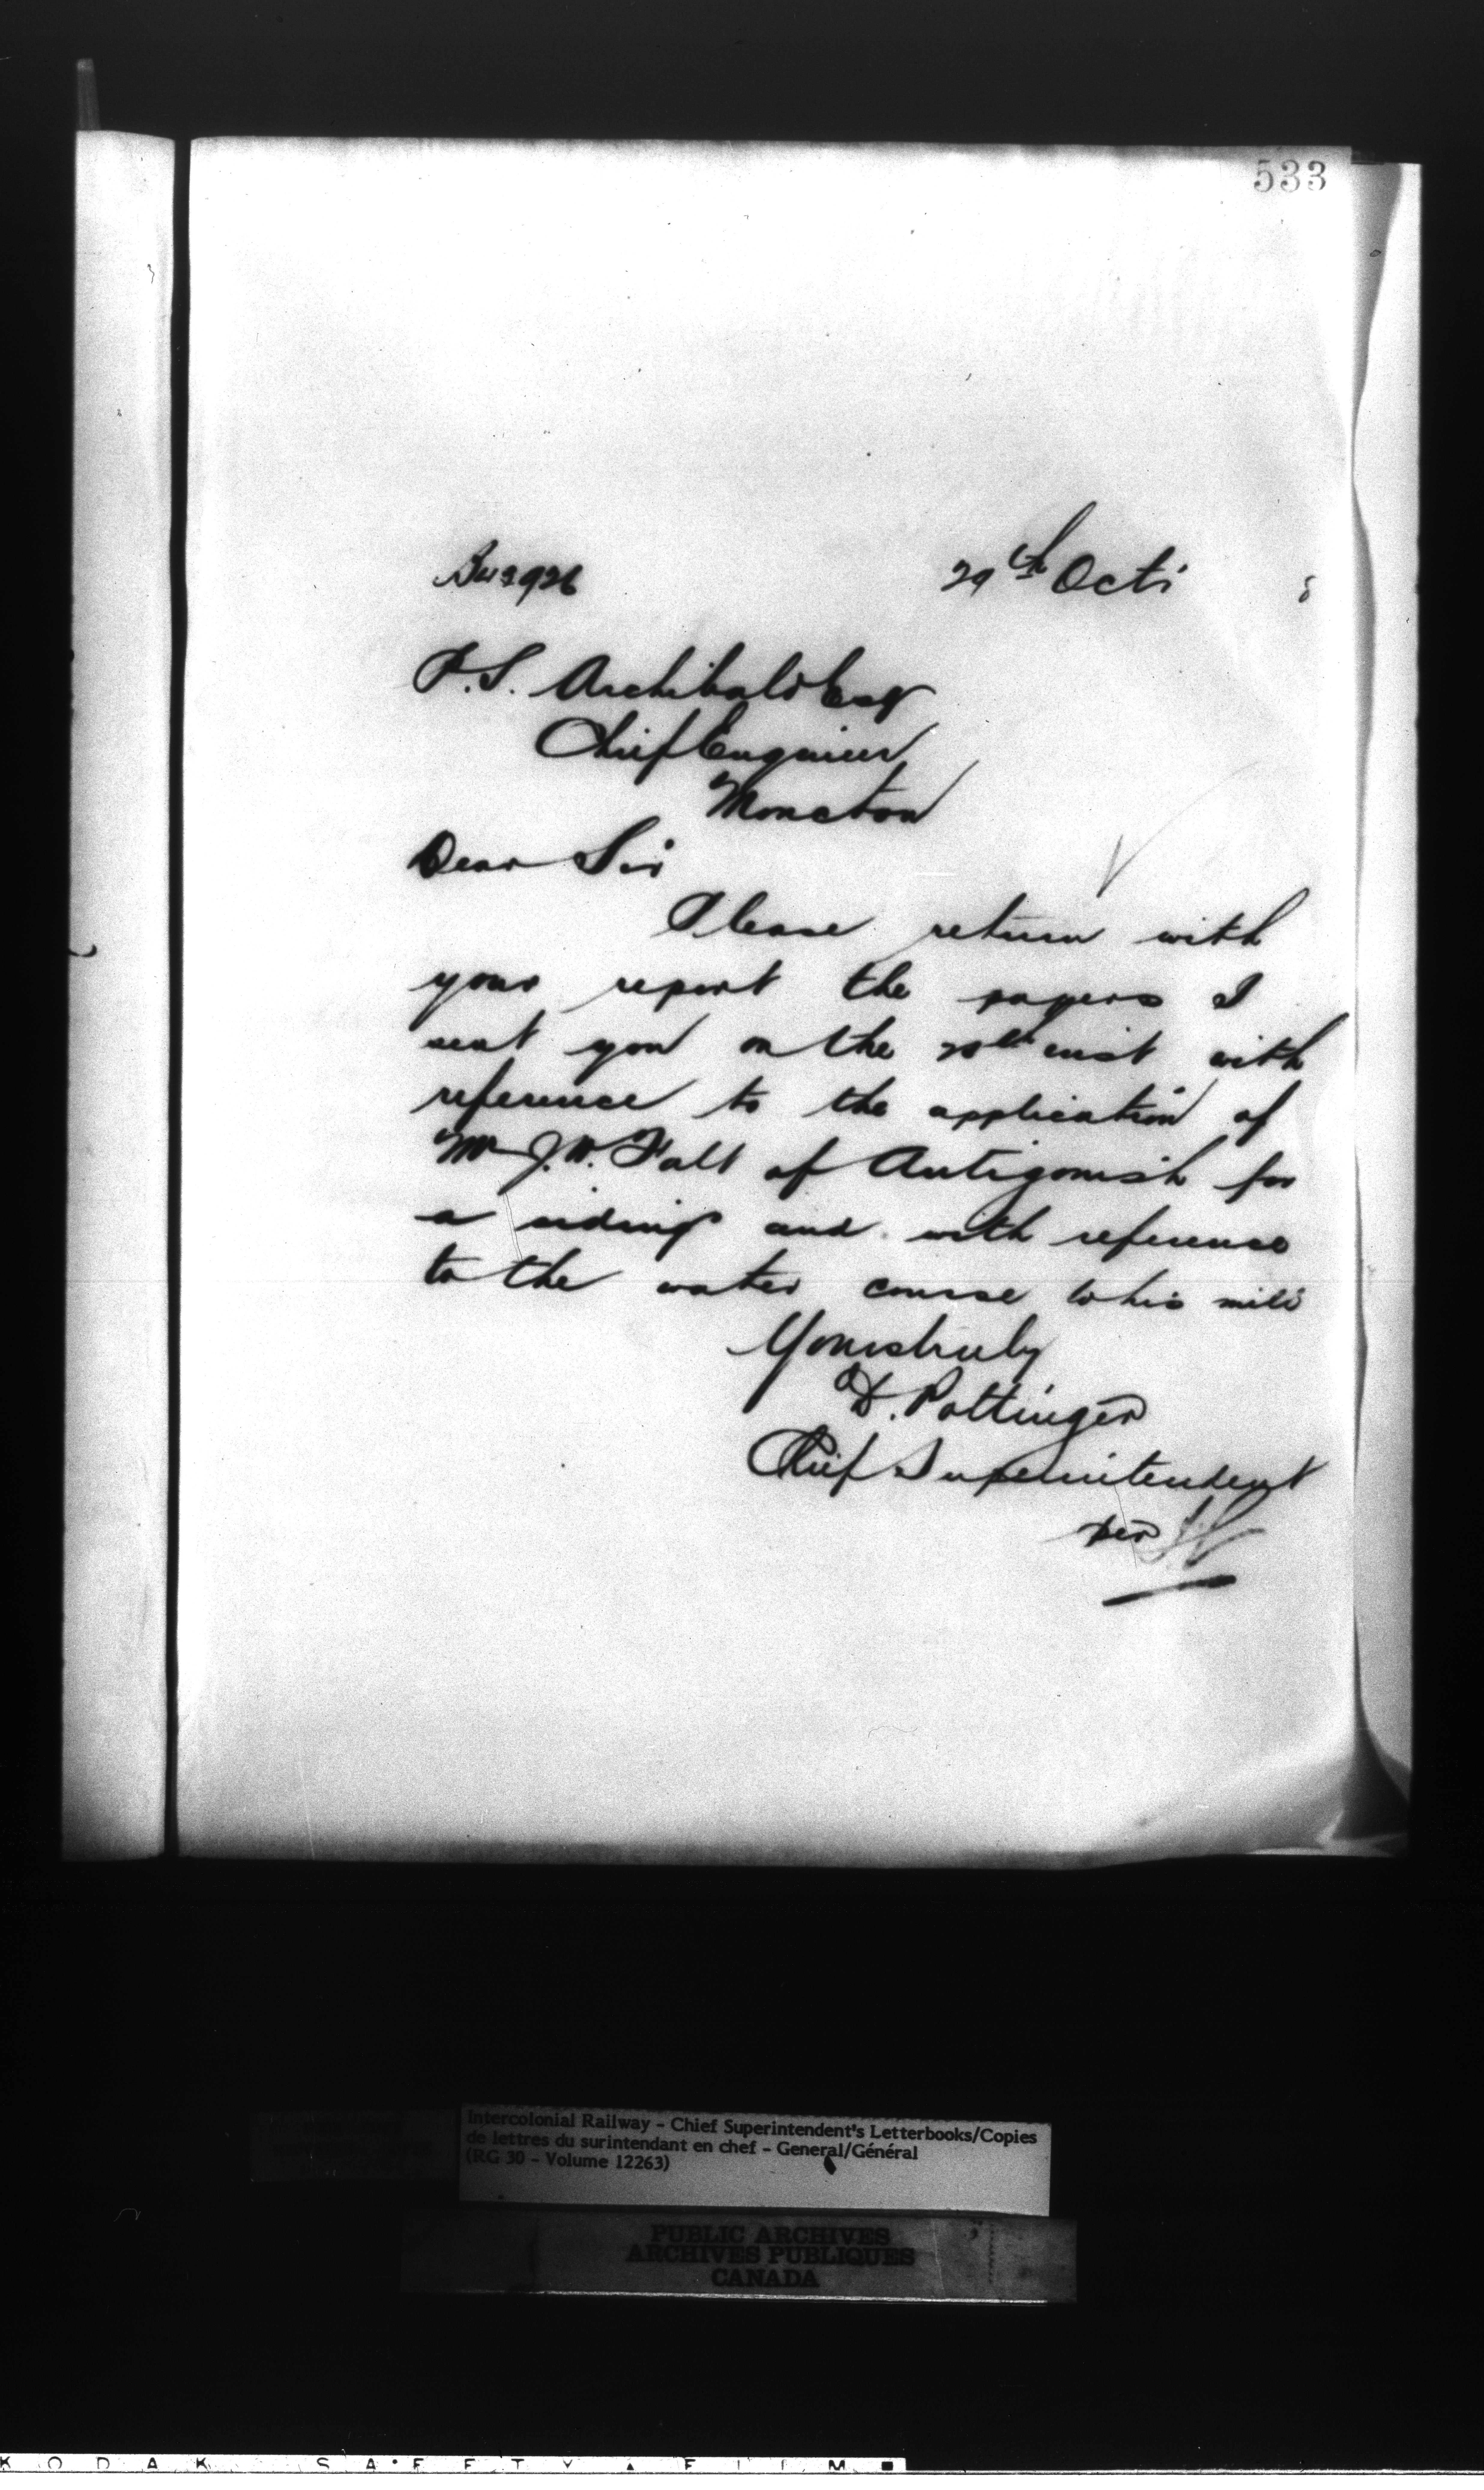 533
29th Oct
P.S. Archibald Esq
Chief Engineer
Moncton
Dear Sir
Please return with
your report the papers I
sent you on the 20th inst with
reference to the application of
Mr J.W. of Antigonish for
a siding and with reference
to the water course to his mill
Yours truly
D. Pottinger
Chief Superintendent
per
Intercolonial Railway - Chief Superintendent's Letterbooks/Copies
de lettres du surintendant en chef - General/Général
(RG 30 - Volume 12263)
PUBLIC ARCHIVES
ARCHIVES PUBLIQUES
CANADA
KODAK SAFETY FILM